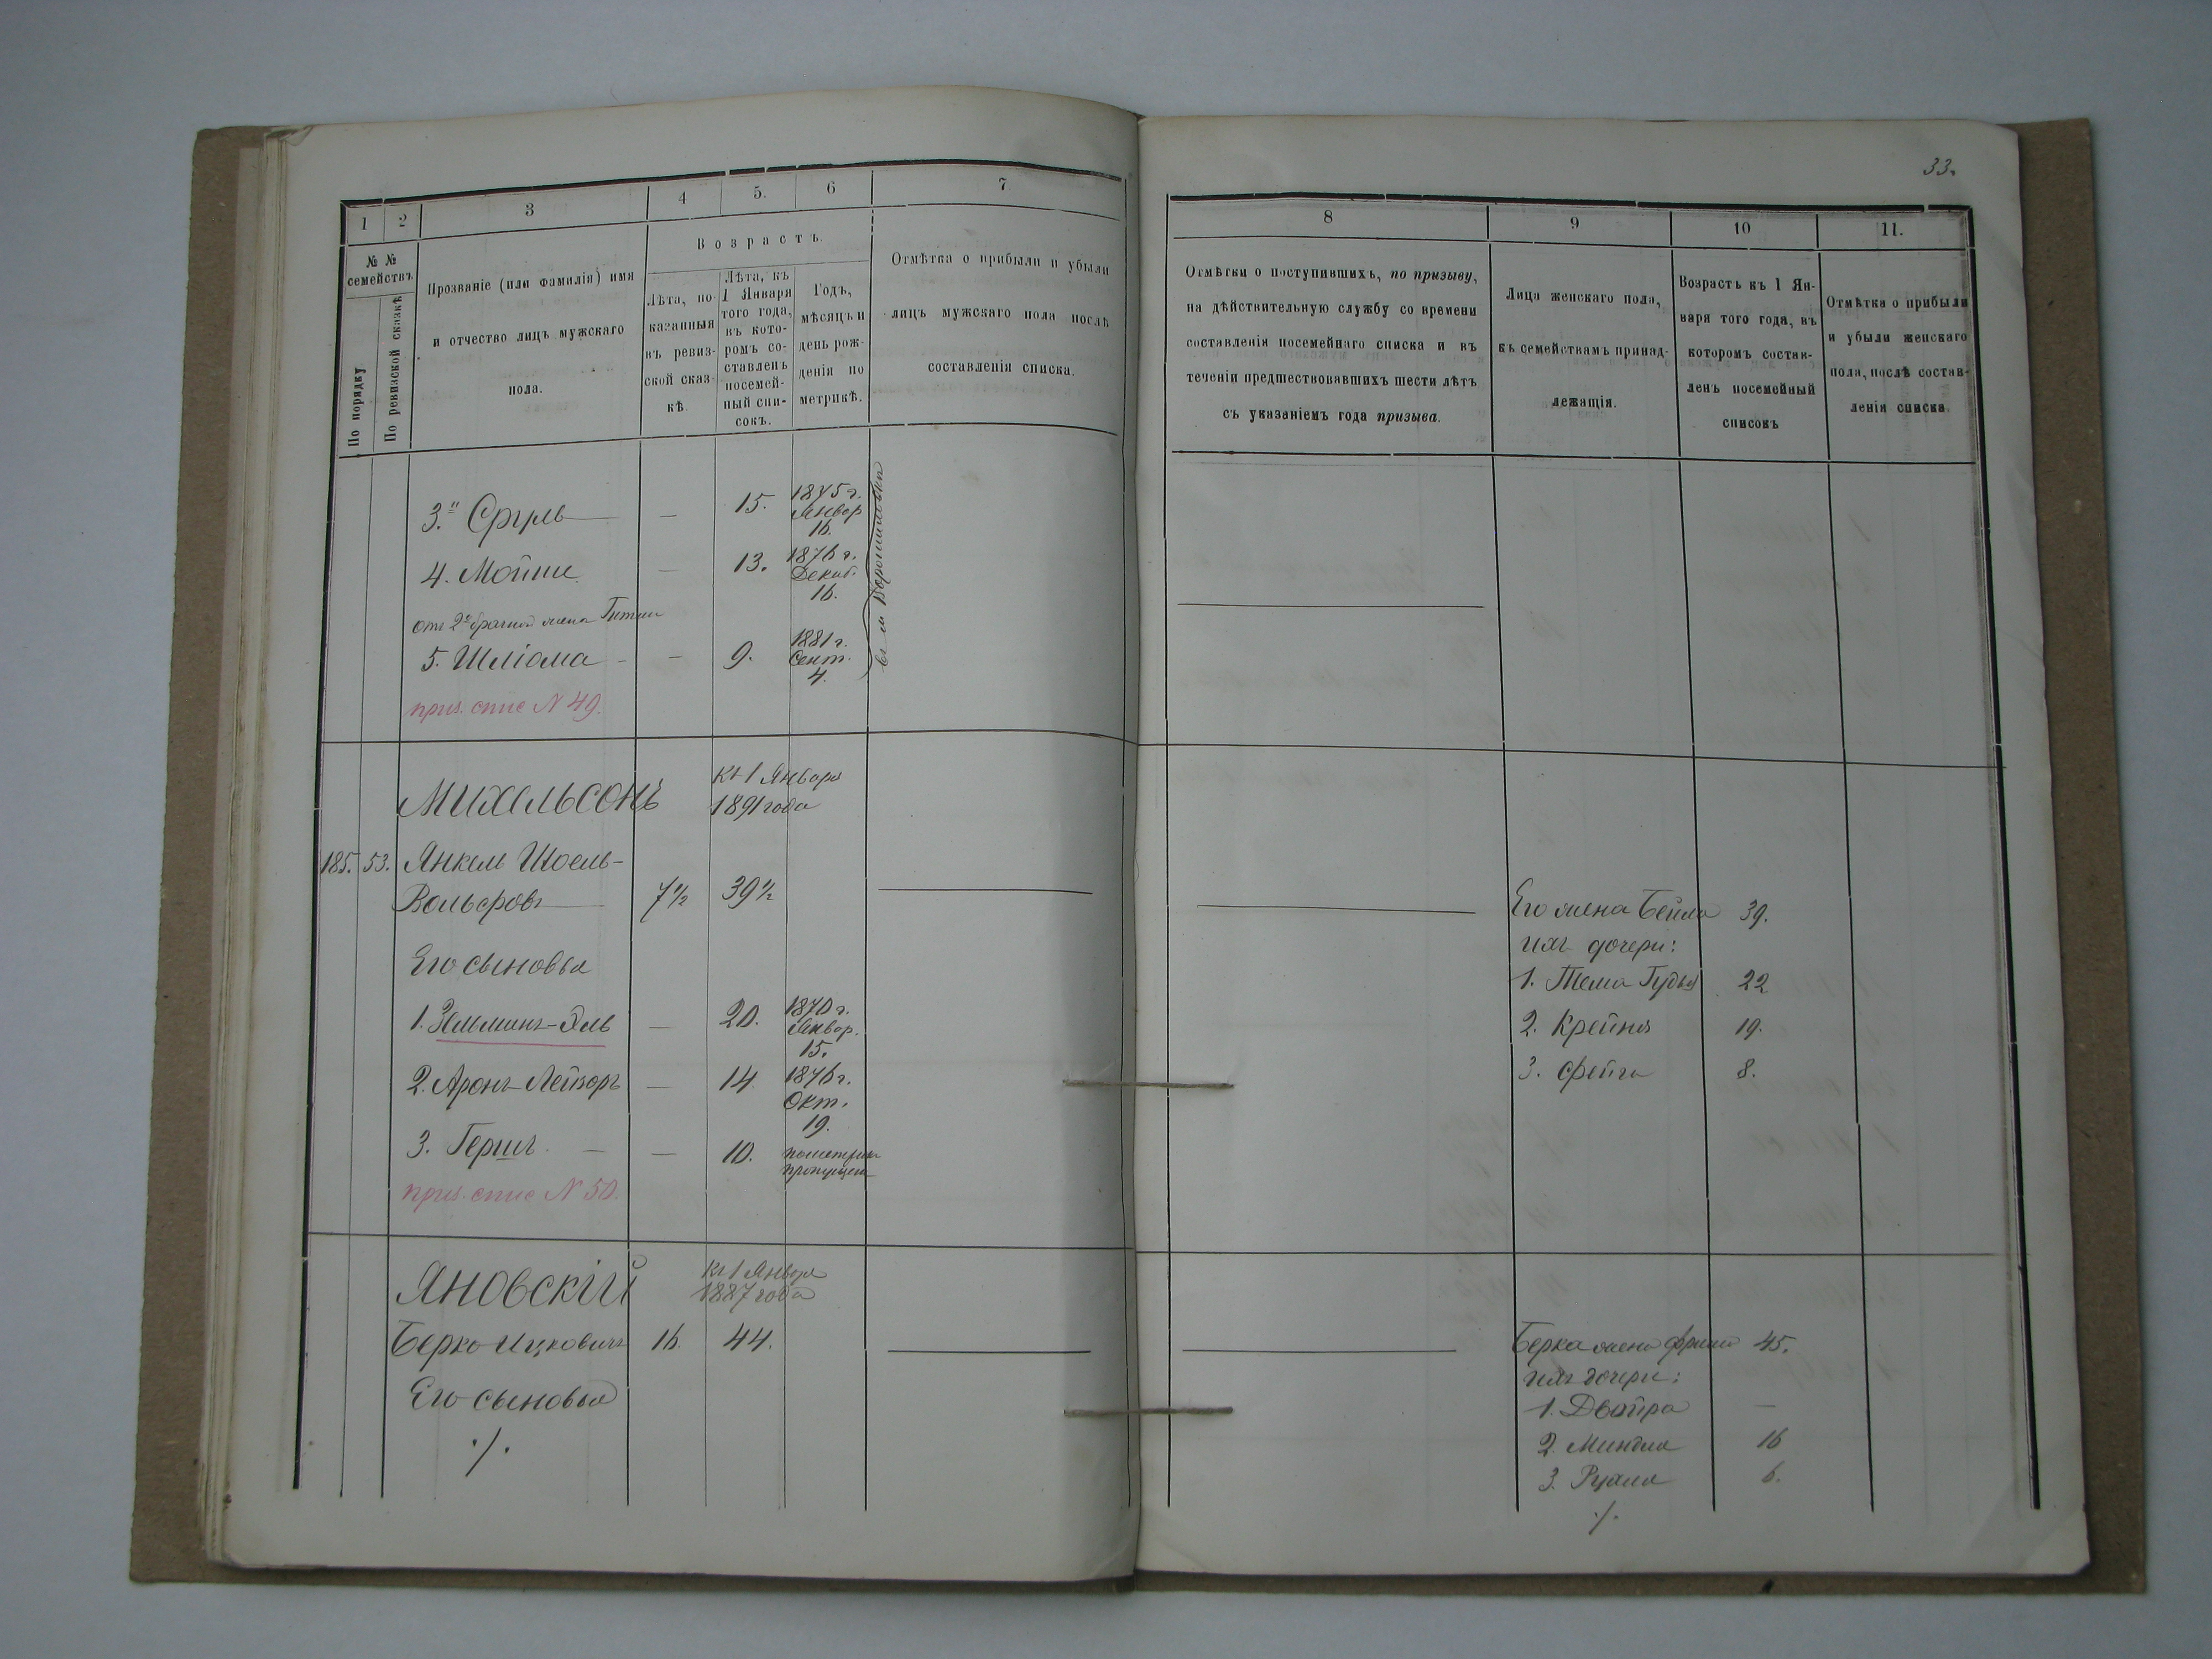 33.
1 2 3 4 5. 6 7
№ №
семействъ
По порядку
По ревизской сказкѣ
Прозваніе (или фамилія) имя
и отчество лицъ мужскаго
пола.
Возрастъ.
Лѣта, по-
казанныя
въ ревиз-
ской сказ-
кѣ.
Лѣта, къ
1 Января
того года,
въ кото-
ромъ со-
ставленъ
посемей-
ный спи-
сокъ.
Годъ,
мѣсяцъ и
день рож-
денія по
метрикѣ.
Отмѣтка о прибыли и убыли
лицъ мужскаго пола послѣ
составленія списка.
3. Сруль — 15. 1875 г.
Январ
16.
4. Мойше. — 13. 1876 г.
Декаб.
16.
отъ 2й брачной жены Гитли
5. Шліома - — 9. 1881 г.
Сент.
4.
приз. спис N 49.
Михельсонъ
къ 1 Января
1891 года
185. 53. Янкель Шоель-
Вольфовъ 7½ 39½
Его сыновья
1. Зельманъ-Эль — 20. 1870 г.
Январ.
15.
2. Аронъ-Лейзоръ — 14 1876 г.
Окт.
19.
3. Гершъ. — — 10. по метрик
пропущен
приз. спис N 50.
Яновскій
къ 1 Января
1887 года
Берко Ицковичъ 16. 44.
Его сыновья
./.
8 9 10 11.
Отмѣтки о поступившихъ, по призыву,
на дѣйствительную службу со времени
составленія посемейнаго списка и въ
теченіи предшествовавшихъ шести лѣтъ
съ указаніемъ года призыва.
Лица женскаго пола,
къ семействамъ принад-
лежащія.
Возрастъ къ 1 Ян-
варя того года, въ
которомъ состав-
ленъ посемейный
списокъ
Отмѣтка о прибыли
и убыли женскаго
пола, послѣ состав-
ленія списка.
Его жена Бейла 39.
ихъ дочери:
1. Тема Гудья 22
2. Крейня 19.
3. Фейга 8.
Берка жена 45.
ихъ дочери:
1. Двойра —
2. Миндля 16
3. 6.
./.